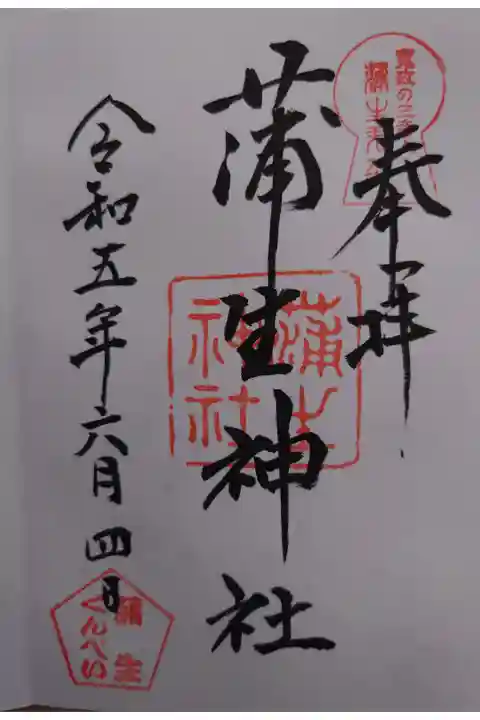 奉拝
寛政の三奇人
蒲生君平
蒲生神社
蒲生
神社
令和五年六月四日
蒲生
くんぺい